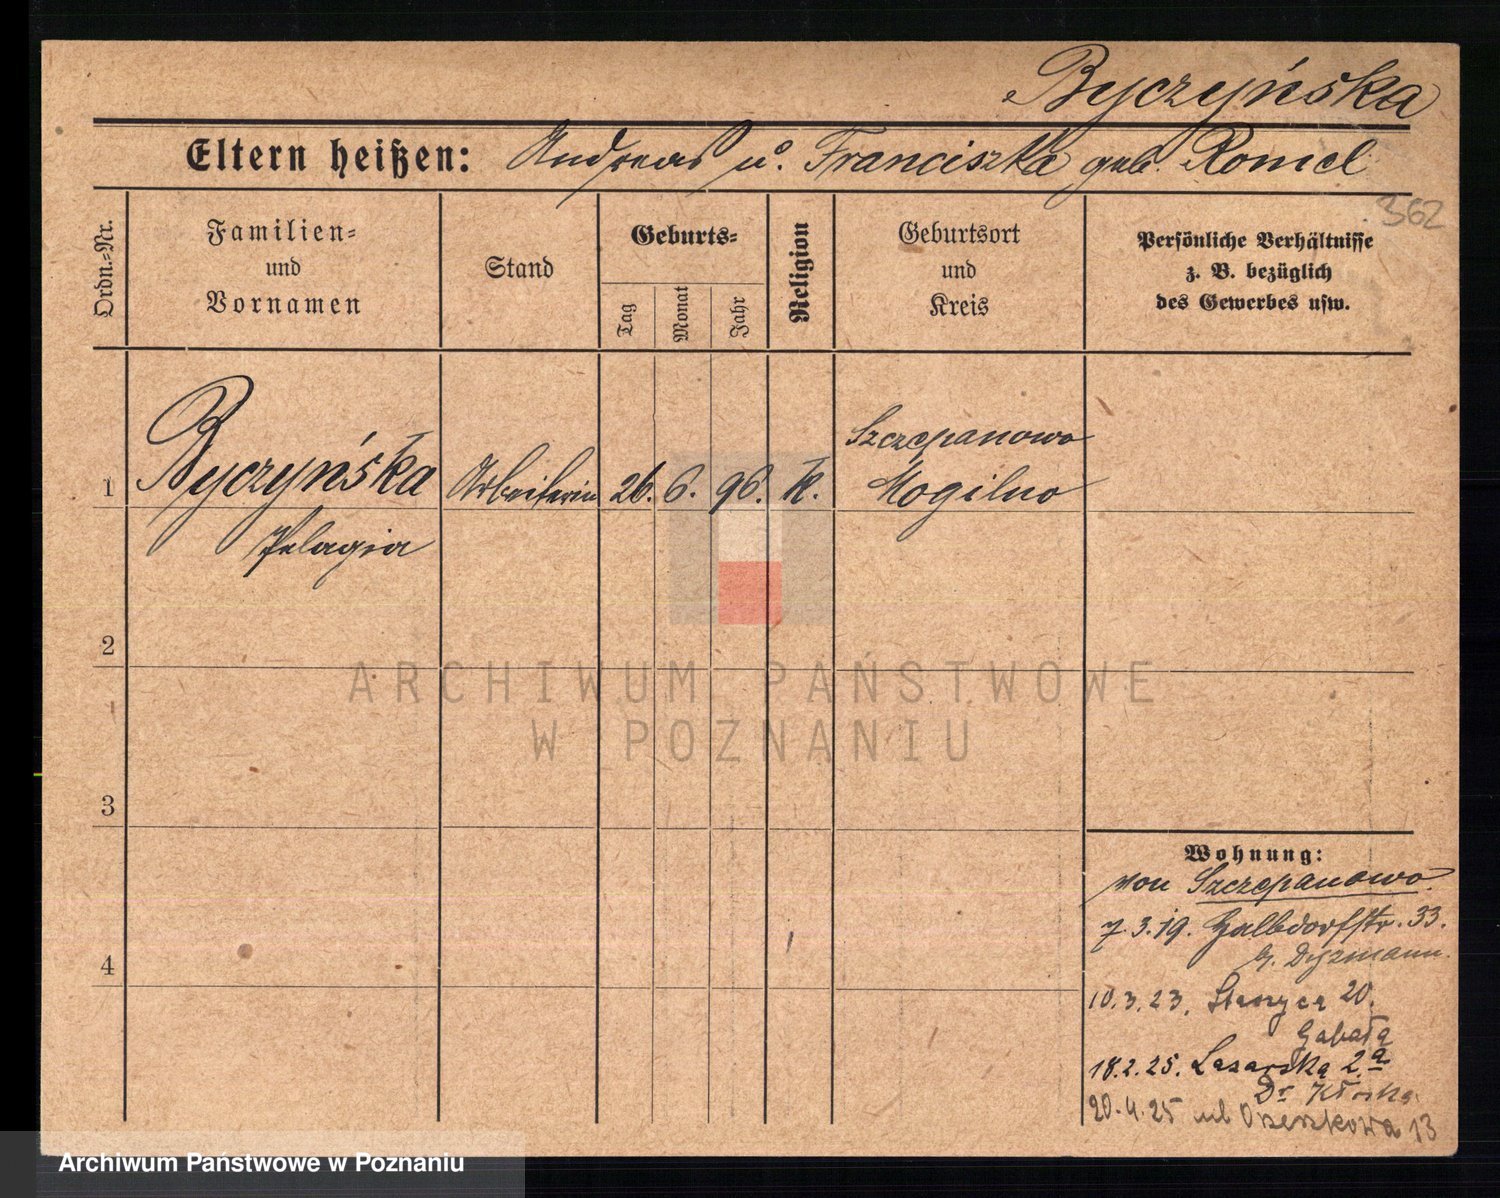 Byczyńska
Eltern heißen: Andreas u. Franciszka geb. Romel
362
Ordn.=Nr.
Familien=
und
Vornamen
Stand
Geburts=
Tag
Monat
Jahr
Religion
Geburtsort
und
Kreis
Persönliche Verhältnisse
z. B. bezüglich
des Gewerbes usw.
1
Byczyńska
Pelagia
Arbeiterin
26. 6. 96. k.
Szczepanowo
Mogilno
2
3
4
ARCHIWUM PAŃSTWOWE
W POZNANIU
Wohnung:
von Szczepanowo
7.3.19. 33.
b. Dyzmann.
10.3.23. Staszyca 20.
18.2.25. Lazarska 2.a
Dr
20.4.25 ul Orzeszkowa 13
Archiwum Państwowe w Poznaniu